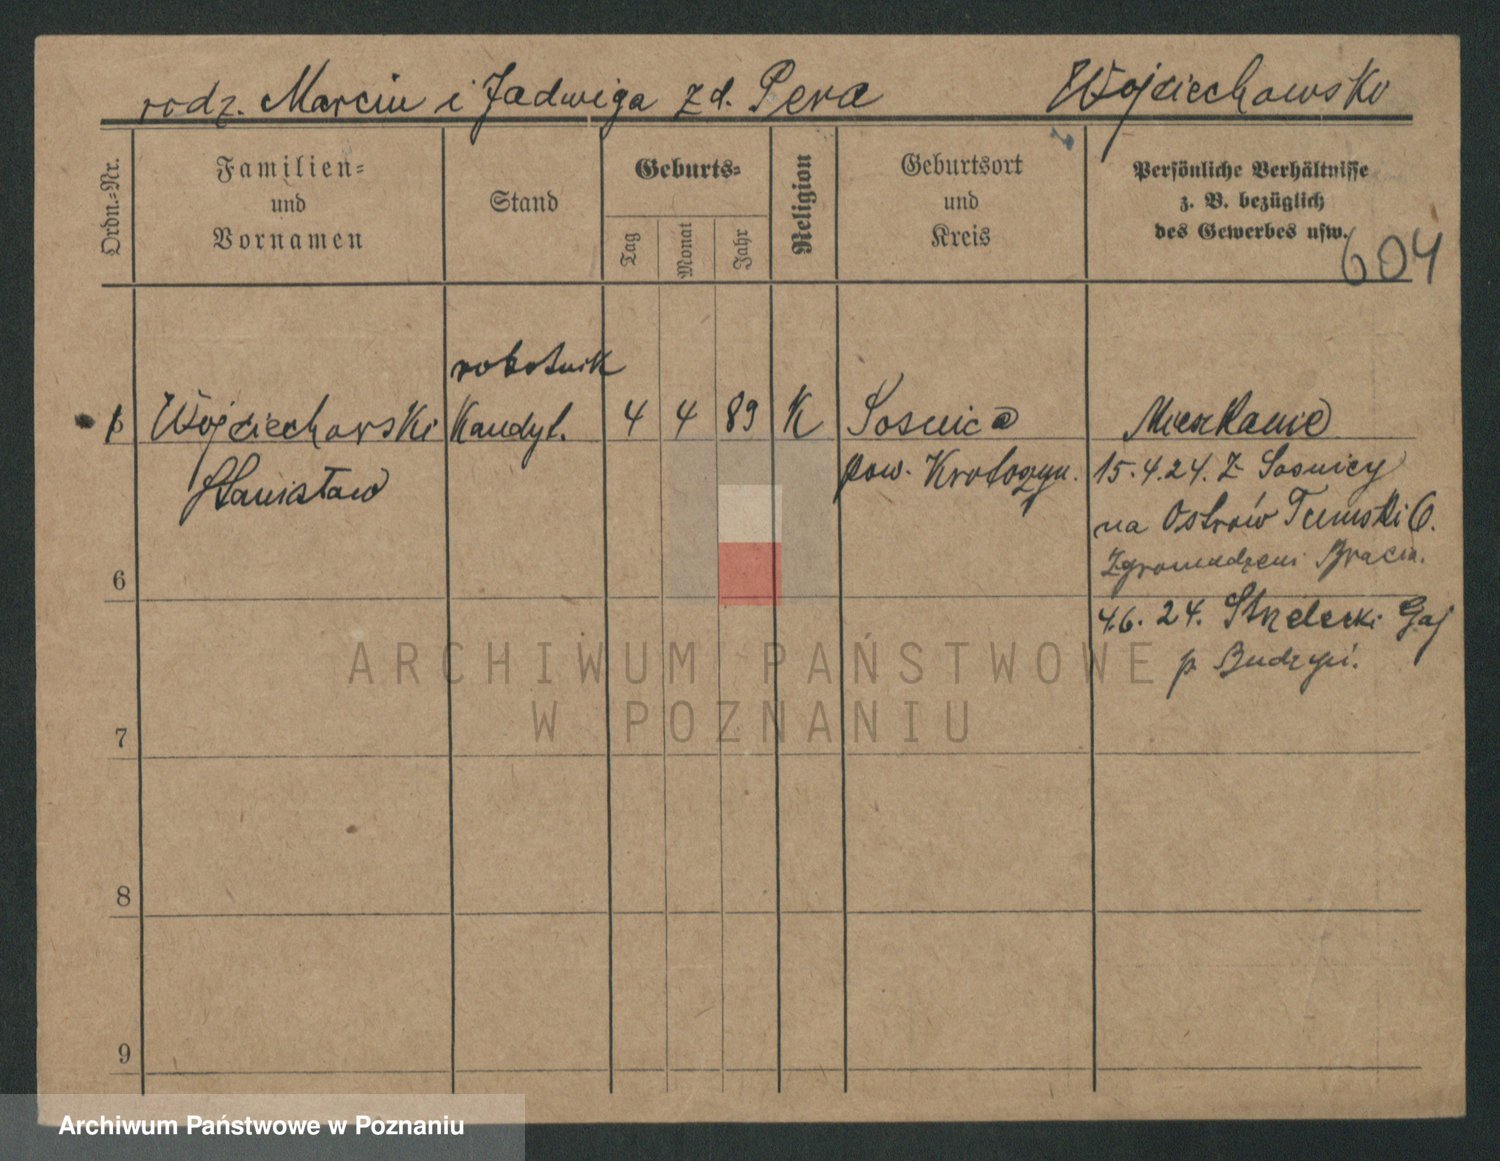 rodz. Marcin i Jadwiga zd. Pera Wojciechowski
Ordn.=Nr.
Familien=
und
Vornamen
Stand
Geburts=
Tag
Monat
Jahr
Religion
Geburtsort
und
Kreis
Persönliche Verhältnisse
z. B. bezüglich
des Gewerbes usw.
604
robotnik
Wojciechowski Kandyt. 4 4 89 K Sosnica Mieszkanie
Stanisław pow. Krotoszyn. 15.4.24. z Sosnicy
na Ostrów Tumski 6.
Zgromadzeni Bracia.
6
4.6.24. Strzelecki Gaj
p. Budzyń.
ARCHIWUM PAŃSTWOWE
W POZNANIU
7
8
9
Archiwum Państwowe w Poznaniu